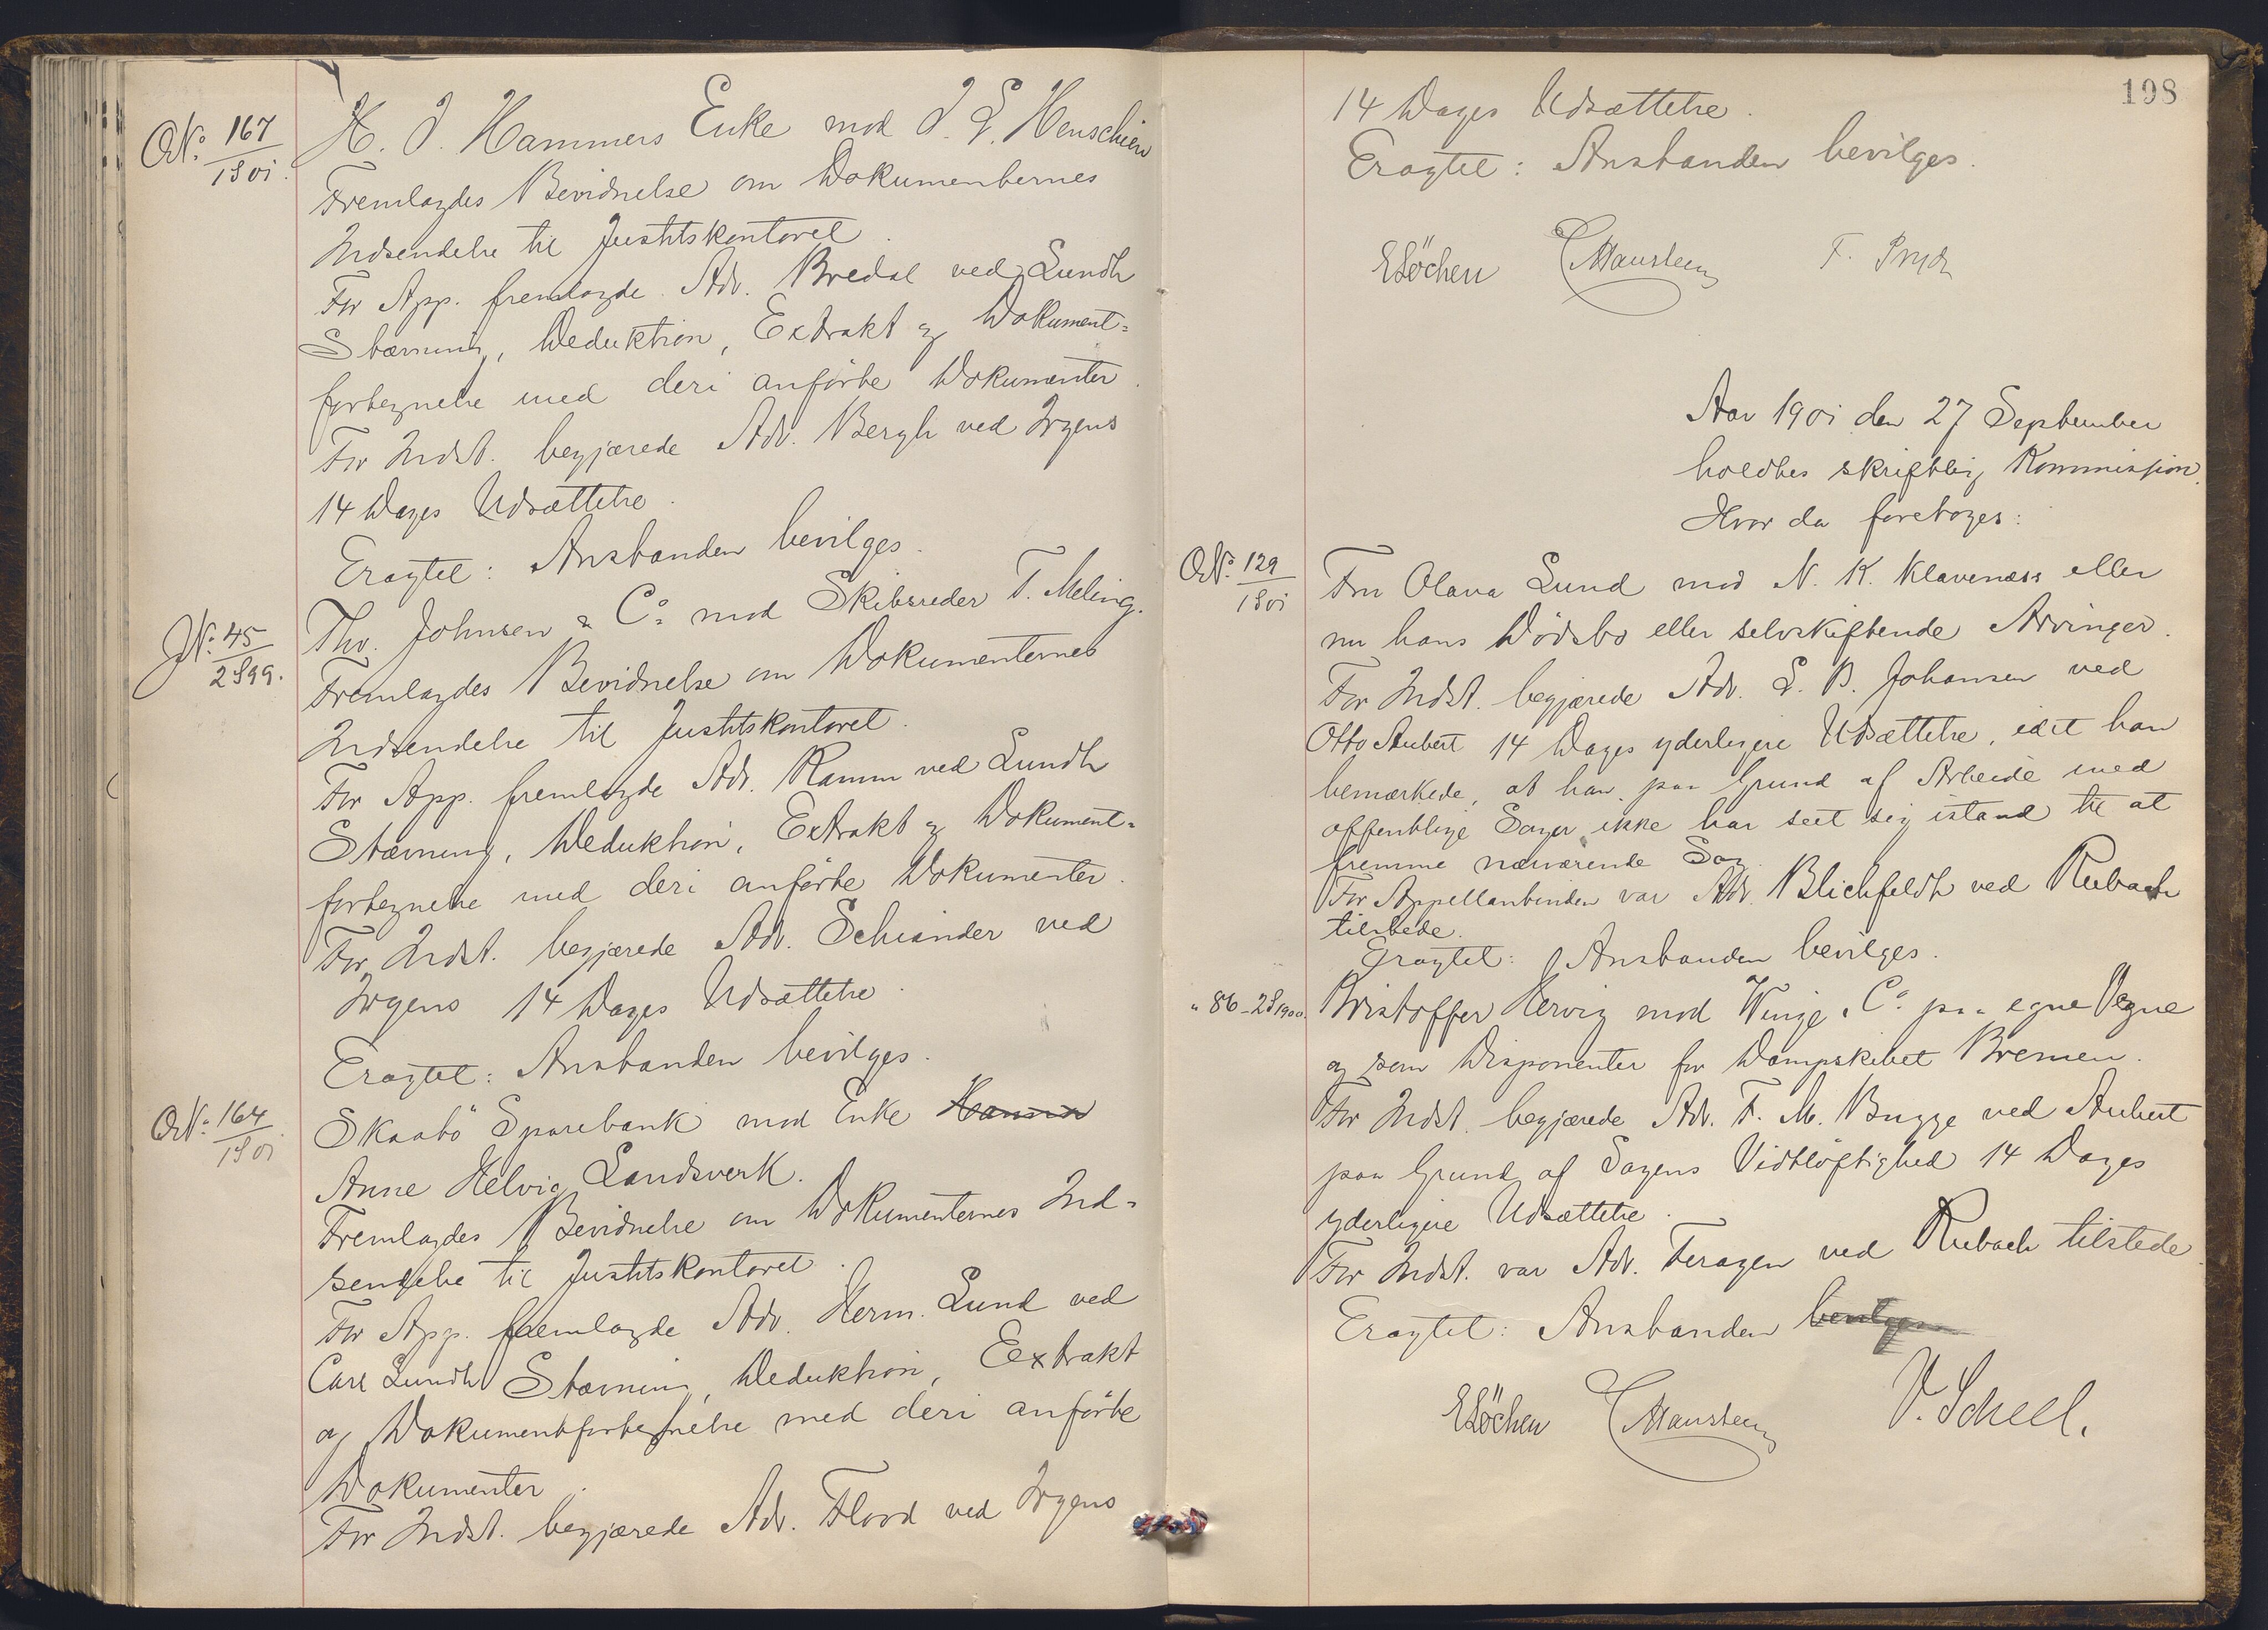 No. 167
1901.
H. J. Hammers Enke mod J. L. Henschien
Fremlagdes Bevidnelse om Dokumenternes
Indsendelse til Justitskontoret.
For App. fremlagde Adv. Bredal ved Lundh
Stævning, Deduktion, Extrakt og Dokument=
fortegnelse med deri anførte Dokumenter.
For Indst. begjærede Adv. Bergh ved Irgens
14 Dages Udsættelse.
Eragtet: Anstanden bevilges.
No. 45
2 S 99.
Thv. Johnsen & Co. mod Skibsreder T. Meling.
Fremlagdes Bevidnelse om Dokumenternes
Indsendelse til Justitskontoret.
For App. fremlagde Adv. Ramm ved Lundh
Stævning, Deduktion, Extrakt og Dokument=
fortegnelse med deri anførte Dokumenter.
For Indst. begjærede Adv. Schiander ved
Irgens 14 Dages Udsættelse.
Eragtet: Anstanden bevilges.
No. 164
1901
Skaabø Sparebank mod Enke
Anne Helvig Landsverk.
Fremlagdes Bevidnelse om Dokumenternes Ind=
sendelse til Justitskontoret.
For App. fremlagde Adv. Herm. Lund ved
Carl Lundh Stævning, Deduktion, Extrakt
og Dokumentfortegnelse med deri anførte
Dokumenter.
For Indst. begjærede Adv. Flood ved Irgens
198
14 Dages Udsættelse.
Eragtet: Anstanden bevilges.
E Løchen C Hansteen
Aar 1901 den 27 September
holdtes skriftlig Kommission.
Hvor da foretoges:
No. 129
1901
Fru Olava Lund mod N. K. Klaveness eller
nu hans Dødsbo eller selvskiftende Arvinger.
For Indst. begjærede Adv. L. B. Johansen ved
Otto Aubert 14 Dages yderligere Udsættelse, idet han
bemærkede, at han paa Grund af Arbeide med
offentlige Sager ikke har seet sig istand til at
fremme nærværende Sag.
For Appellantinden var Adv. Blichfeldt ved Rubach
tilstede.
Eragtet: Anstanden bevilges.
" 86 - 2 S 1900.
Kristoffer Hervig mod Winge & Co. paa egne Vegne
og som Disponenter for Dampskibet Bremen.
For Indst. begjærede Adv. F. M. Bugge ved Aubert
paa Grund af Sagens Vidtløftighed 14 Dages
yderligere Udsættelse.
For Indst. var Adv. Feragen ved Rubach tilstede.
Eragtet: Anstanden bevilges
E Løchen C Hansteen V. Scheel.